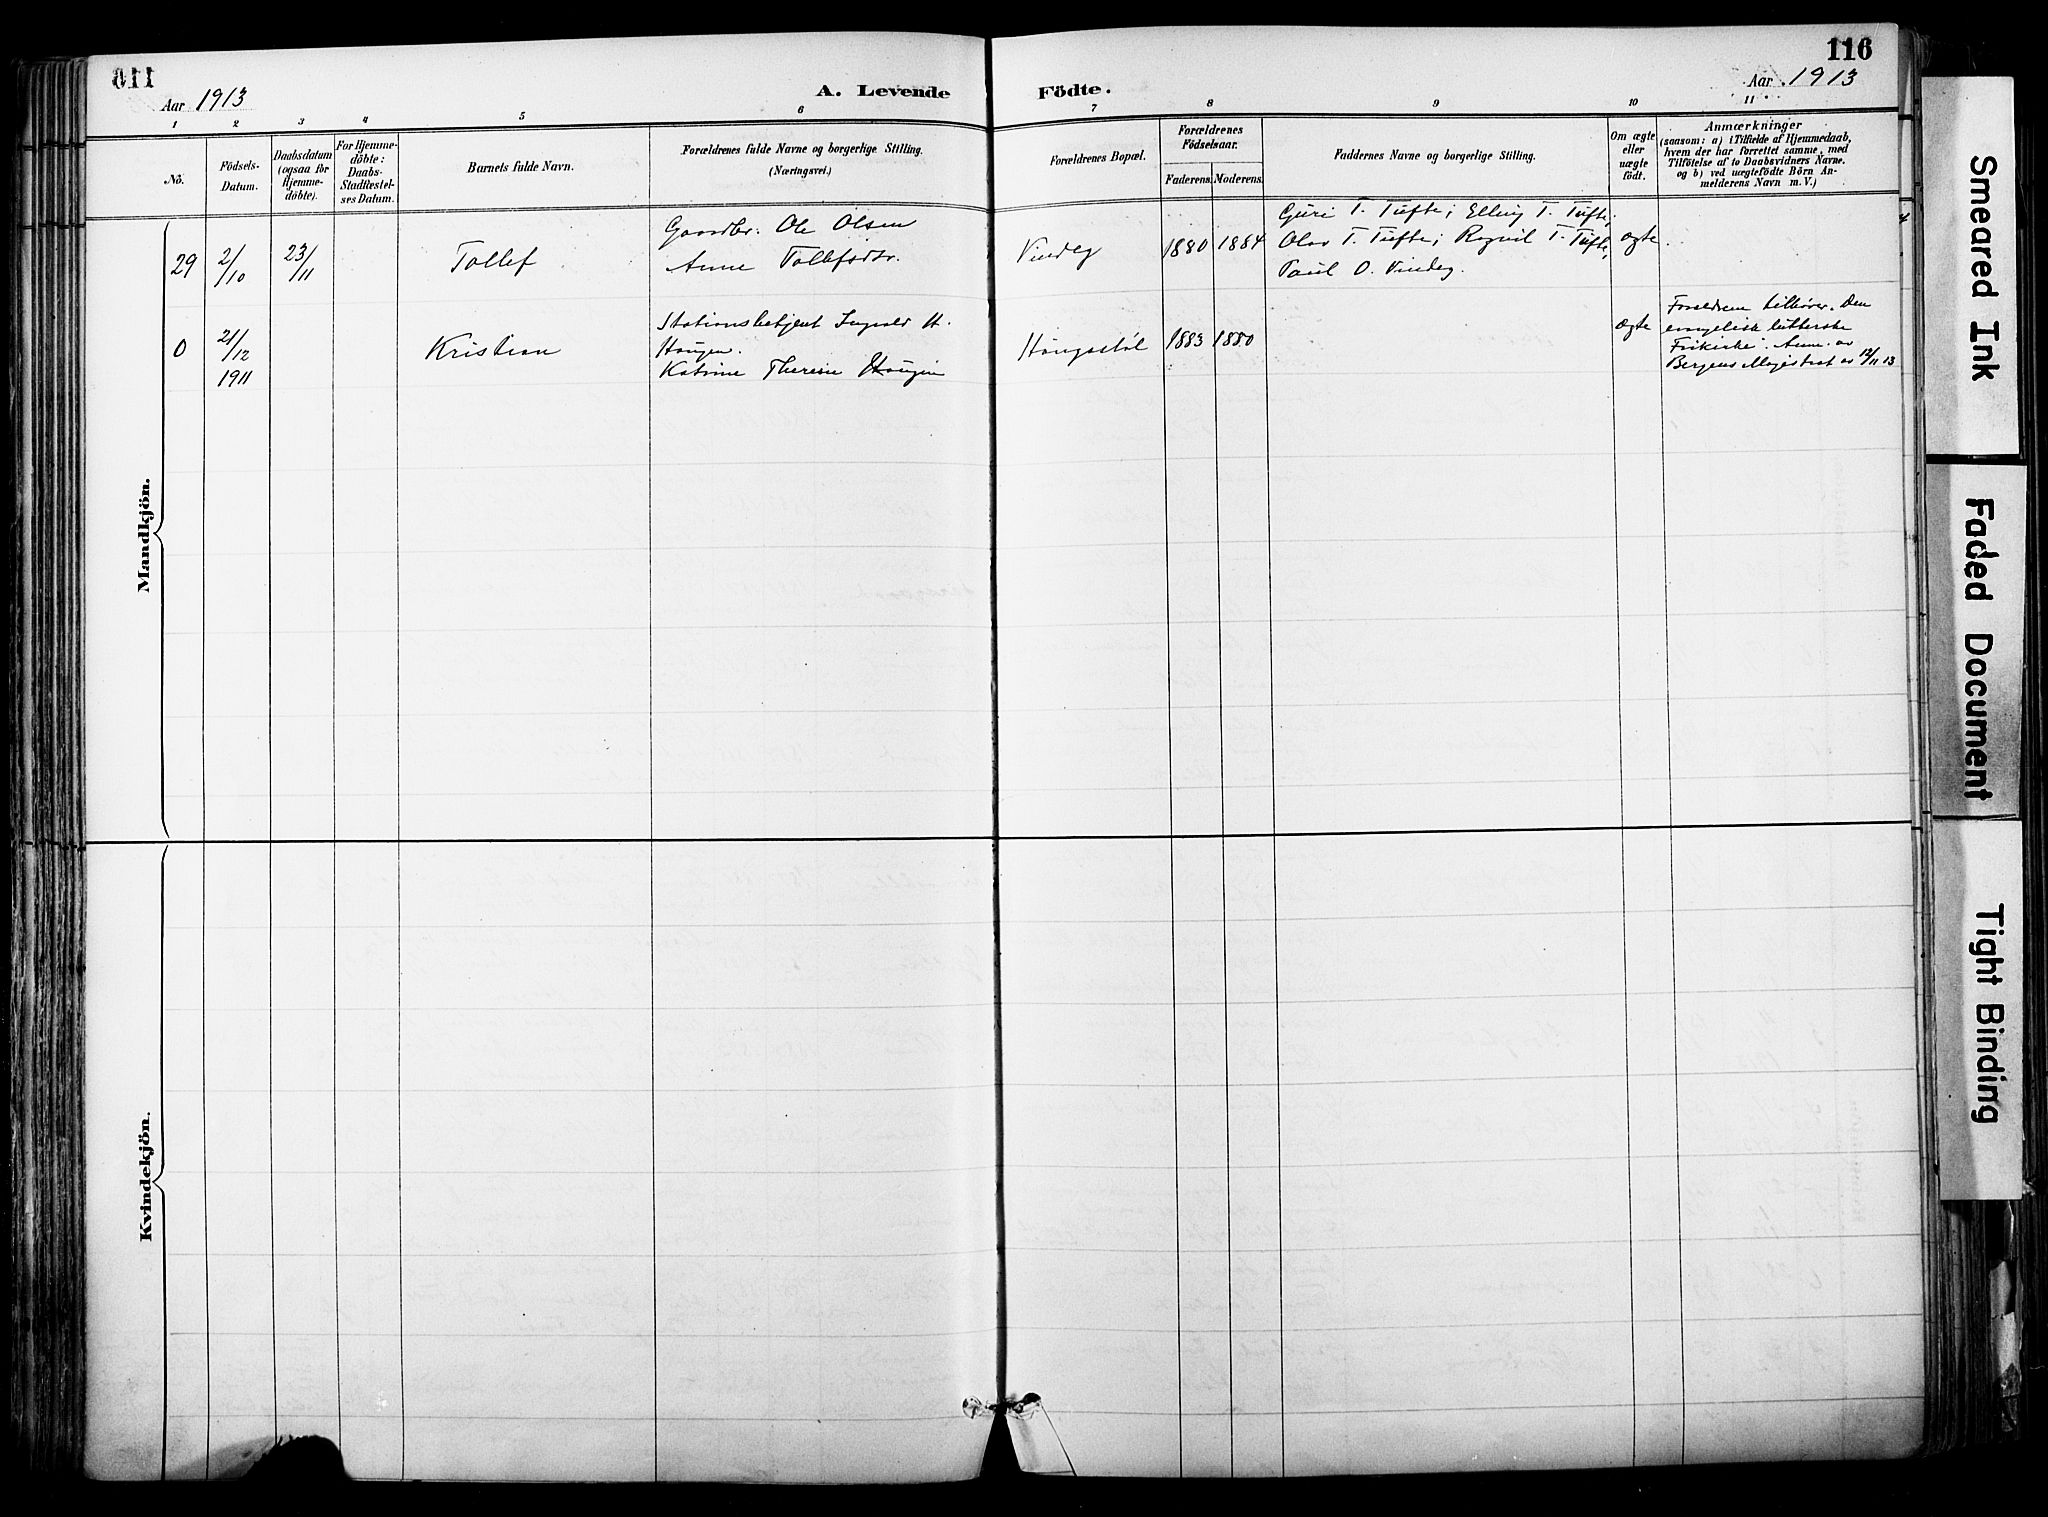 116
116
Aar 1913
A. Levende
Födte.
Aar 1913
1 2 3 4 5 6 7 8 9 10 11
No.
Födsels-
Datum.
Daabsdatum
(ogsaa for
Hjemme-
döbte).
For Hjemme-
döbte:
Daabs-
Stadfæstel-
ses Datum.
Barnets fulde Navn.
Forældrenes fulde Navne og borgerlige Stilling.
(Næringsvei.)
Forældrenes Bopæl.
Forældrenes
Födselsaar.
Faderens. Moderens.
Faddernes Navne og borgerlige Stilling.
Om ægte
eller
uægte
födt.
Anmærkninger
(saasom: a) i Tilfælde af Hjemmedaab,
hvem der har forrettet samme, med
Tilföielse af to Daabsvidners Navne.
og b) ved uægtefödte Börn An-
melderens Navn m. V.)
Mandkjön.
29
2/10
23/11
Tollef
Gaardbr. Ole Olsen
Anne Tollefsdtr.
Vindeg
1880 1884
Guri T. Tufte; Elling T. Tufte;
Olav T. Tufte; Ragnil T. Tufte,
Paul O. Vindeg.
ægte
0
21/12
1911
Kristian
Stationsbetjent Ingvald H.
Haugen.
Katrine Therese Haugen
Haugastöl
1883 1880
ægte
Forældrene tilhører Den
evangelisk lutterske
Frikirke. Anm. av
Bergens Magistrat av 12/11 13
Kvindekjön.
Smeared Ink
Faded Document
Tight Binding